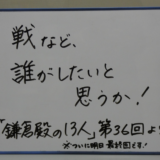 戦など、
誰がしたいと
思うか！
「鎌倉殿の13人」第36回より
※ついに明日最終回です！